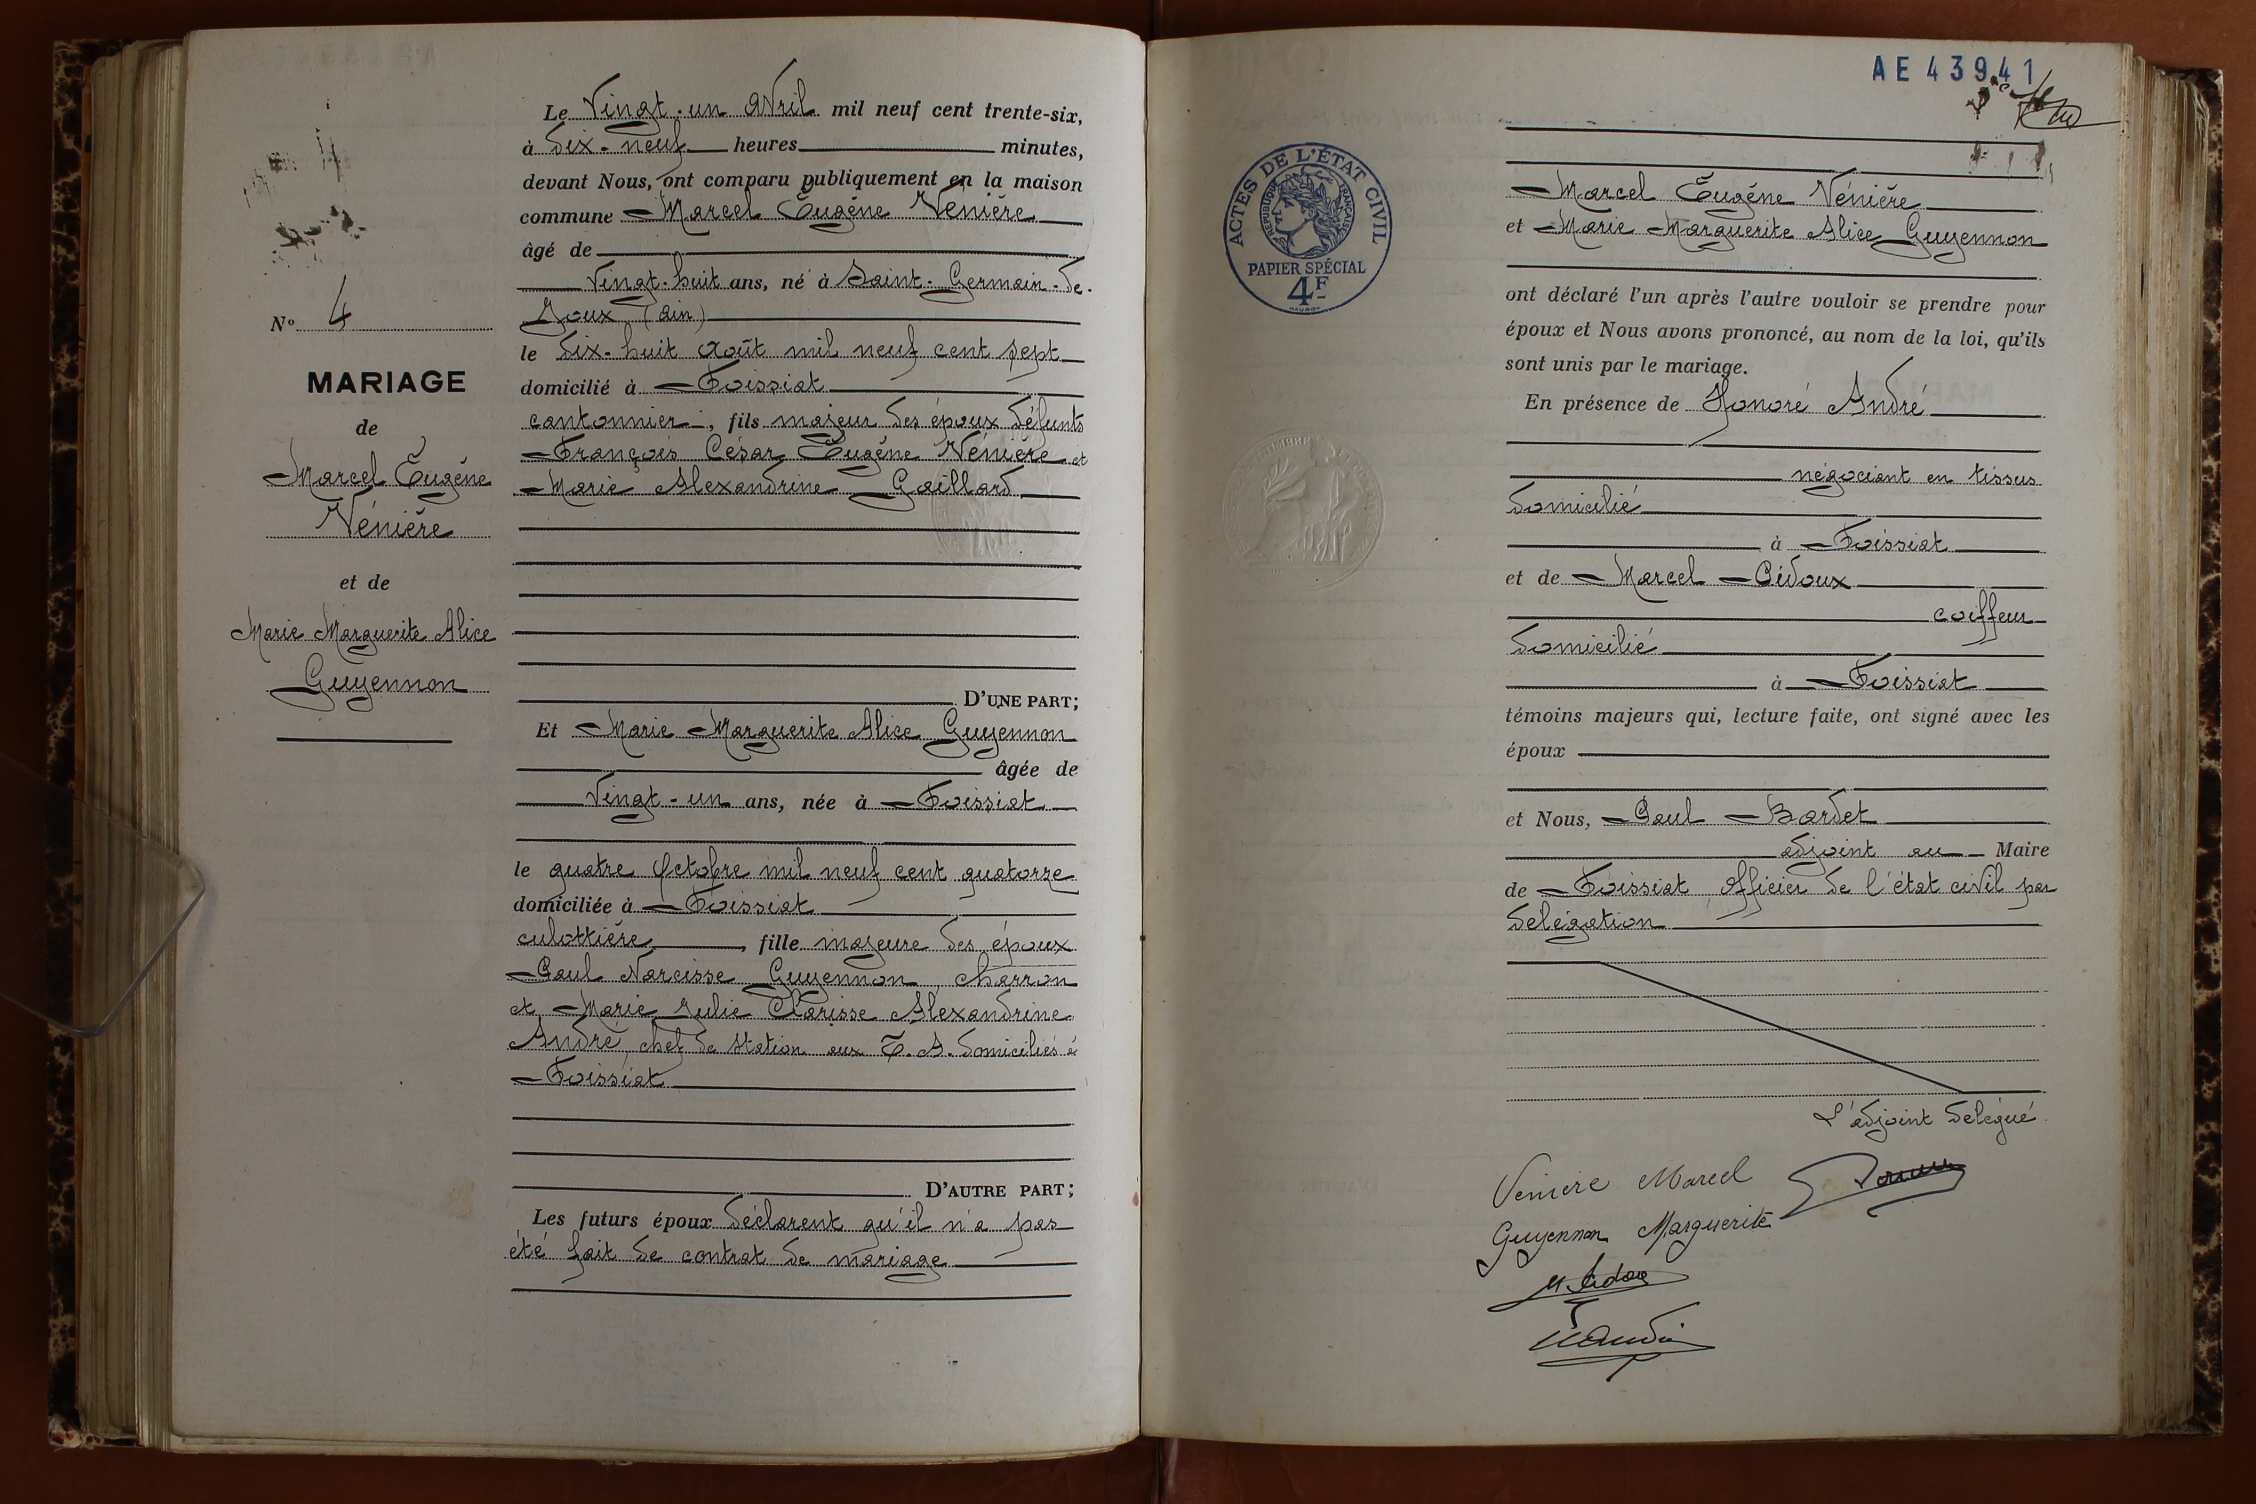 Le Vingt-un Avril mil neuf cent trente-six,
à dix-neuf heures minutes,
devant Nous, ont comparu publiquement en la maison
commune Marcel Eugène Vénière
âgé de
Vingt-huit ans, né à Saint-Germain-de-
Joux (Ain)
le dix-huit Août mil neuf cent sept
domicilié à Foissiat
cantonnier, fils majeur des époux défunts
François César Eugène Vénière et
Marie Alexandrine Gaillard
D'UNE PART;
Et Marie Marguerite Alice Guyennon
âgée de
Vingt-un ans, née à Foissiat
le quatre Octobre mil neuf cent quatorze
domiciliée à Foissiat
culottière, fille majeure des époux
Paul Narcisse Guyennon, charron
et Marie Julie Clarisse Alexandrine
André, chef de station aux T. A. domiciliés à
Foissiat
D'AUTRE PART;
Les futurs époux déclarent qu'il n'a pas
été fait de contrat de mariage
No 4
MARIAGE
de
Marcel Eugène
Vénière
et de
Marie Marguerite Alice
Guyennon
AE 43941
ACTES DE L'ÉTAT CIVIL
RÉPUBLIQUE FRANÇAISE
PAPIER SPÉCIAL
4F
Marcel Eugène Vénière
et Marie Marguerite Alice Guyennon
ont déclaré l'un après l'autre vouloir se prendre pour
époux et Nous avons prononcé, au nom de la loi, qu'ils
sont unis par le mariage.
En présence de Honoré André
négociant en tissus
domicilié
à Foissiat
et de Marcel Pidoux
coiffeur
domicilié
à Foissiat
témoins majeurs qui, lecture faite, ont signé avec les
époux
et Nous, Paul Bardet
adjoint au Maire
de Foissiat, Officier de l'état civil par
délégation
L'adjoint délégué
Vénière Marcel
Guyennon Marguerite